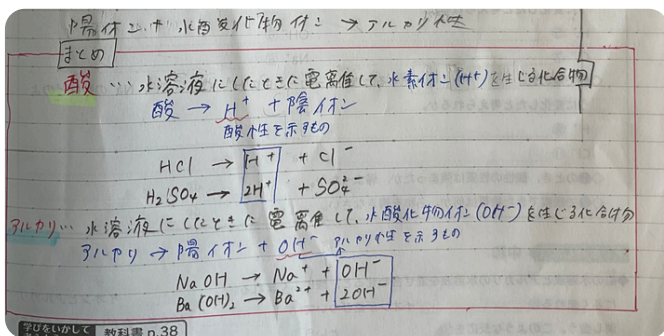 陽イオン + 水酸化物イオン → アルカリ性
まとめ
酸… 水溶液にしたときに電離して、水素イオン(H+)を生じる化合物
酸 → H⁺ + 陰イオン
酸性を示すもの
HCl → H⁺ + Cl⁻
H₂SO₄ → 2H⁺ + SO₄²⁻
アルカリ… 水溶液にしたときに電離して、水酸化物イオン(OH⁻)を生じる化合物
アルカリ → 陽イオン + OH⁻ アルカリ性を示すもの
NaOH → Na⁺ + OH⁻
Ba(OH)₂ → Ba²⁺ + 2OH⁻
学びをいかして
教科書 p.38